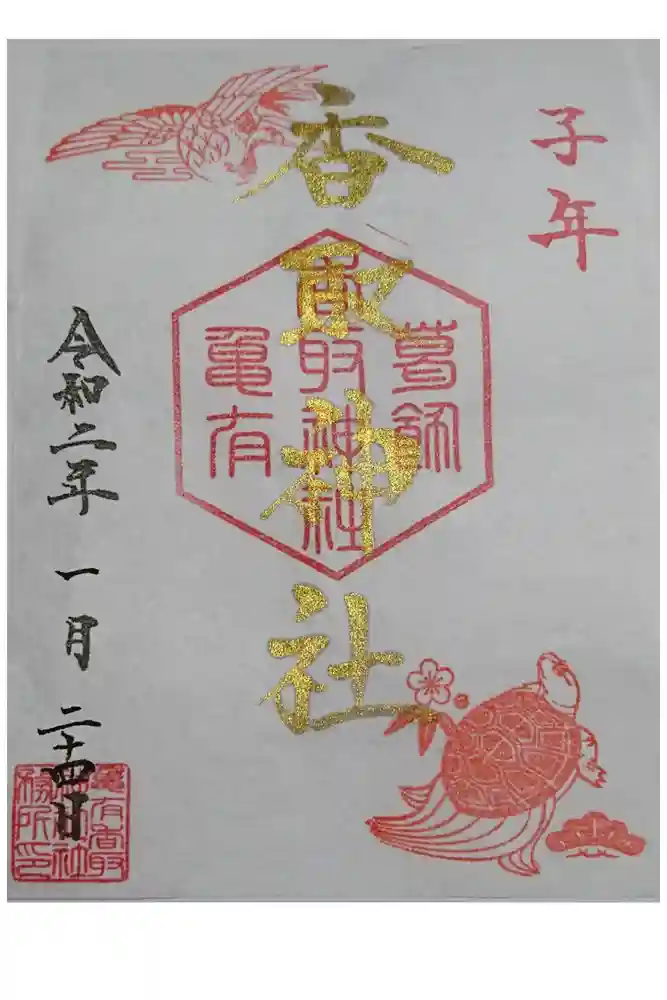 子年
香取神社
葛飾
香取神社
亀有
令和二年 一月 二十四日
亀有香取
神社
務所印